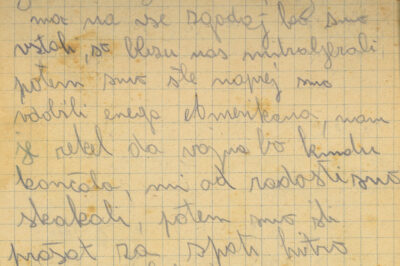 moč na vse zgodaj bo smo
vstali, so blizu nas mitraljezali
potem smo šle naprej smo
vdobili enega Amerikana, nam
je rekel da vojna bo kmalu
končala, mi od radosti smo
skakali, potem smo šli
prašat za spati hitro